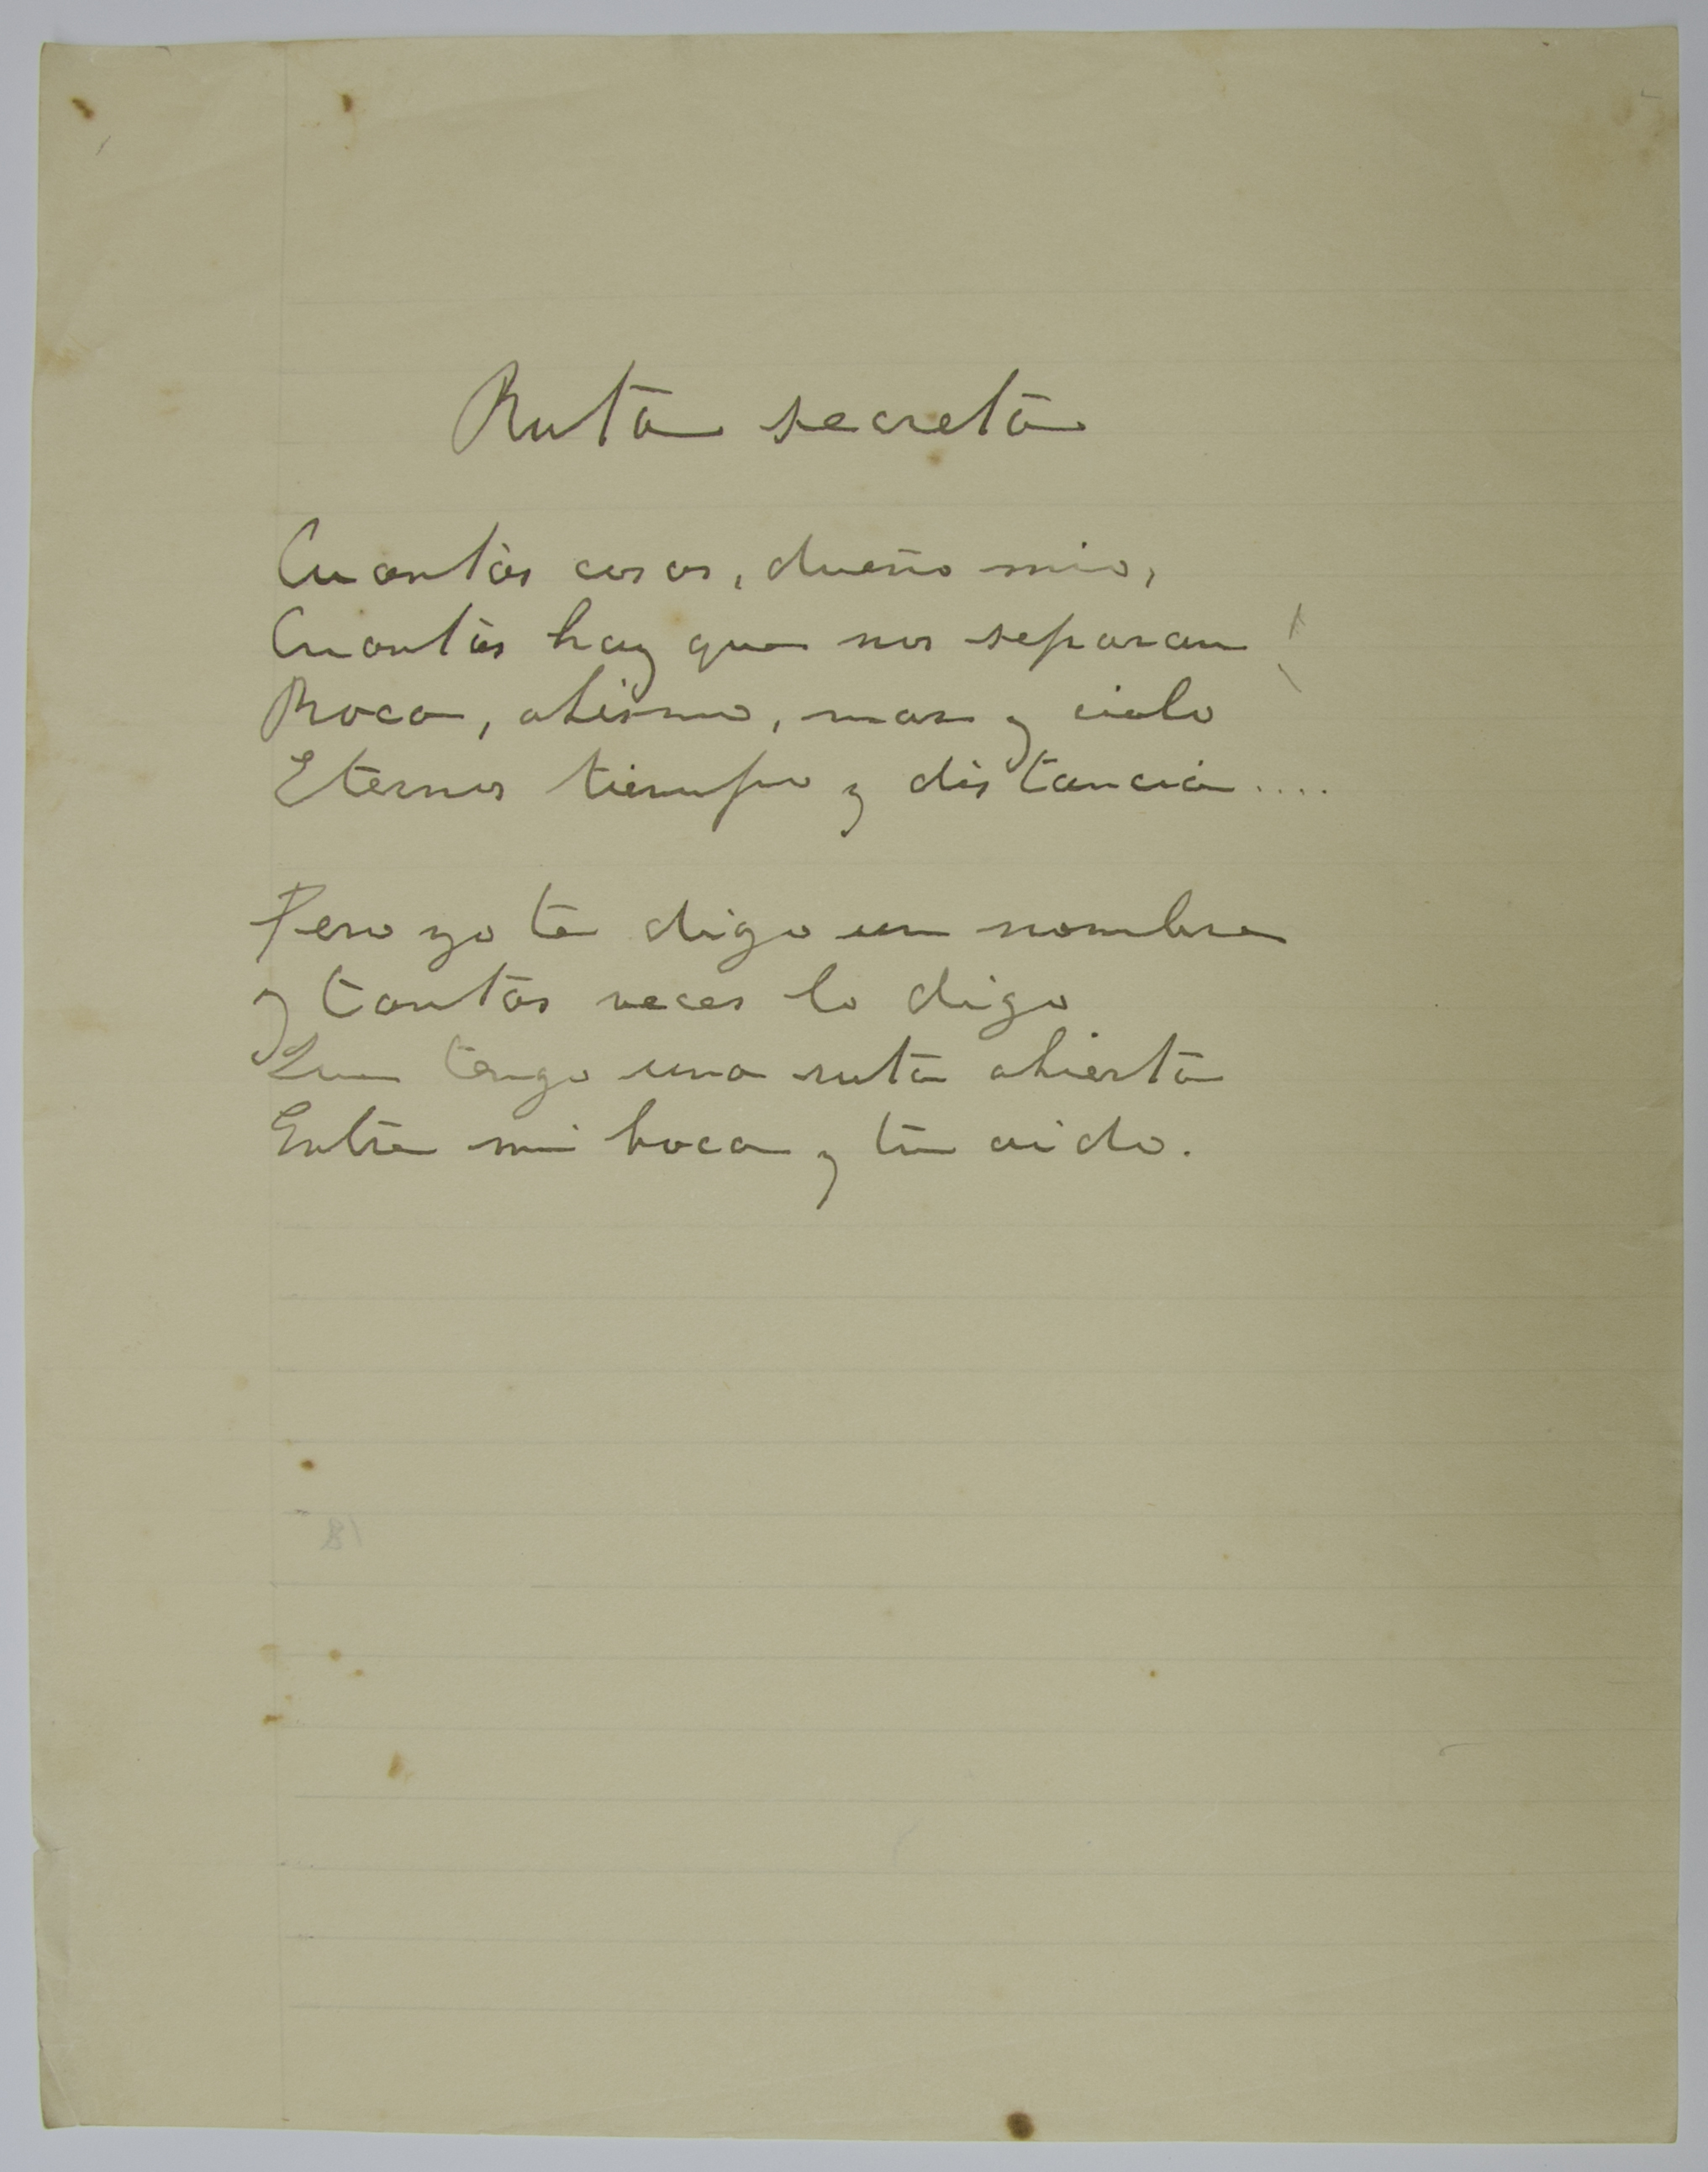 Ruta secreta
Cuantas cosas, dueño mio,
Cuantas hay que nos separan!
Roca, abismo, mar y cielo
Eternos tiempo y distancia....
Pero yo te digo un nombre
y tantas veces lo digo
Que tengo una ruta abierta
Entre mi boca y tu oido.